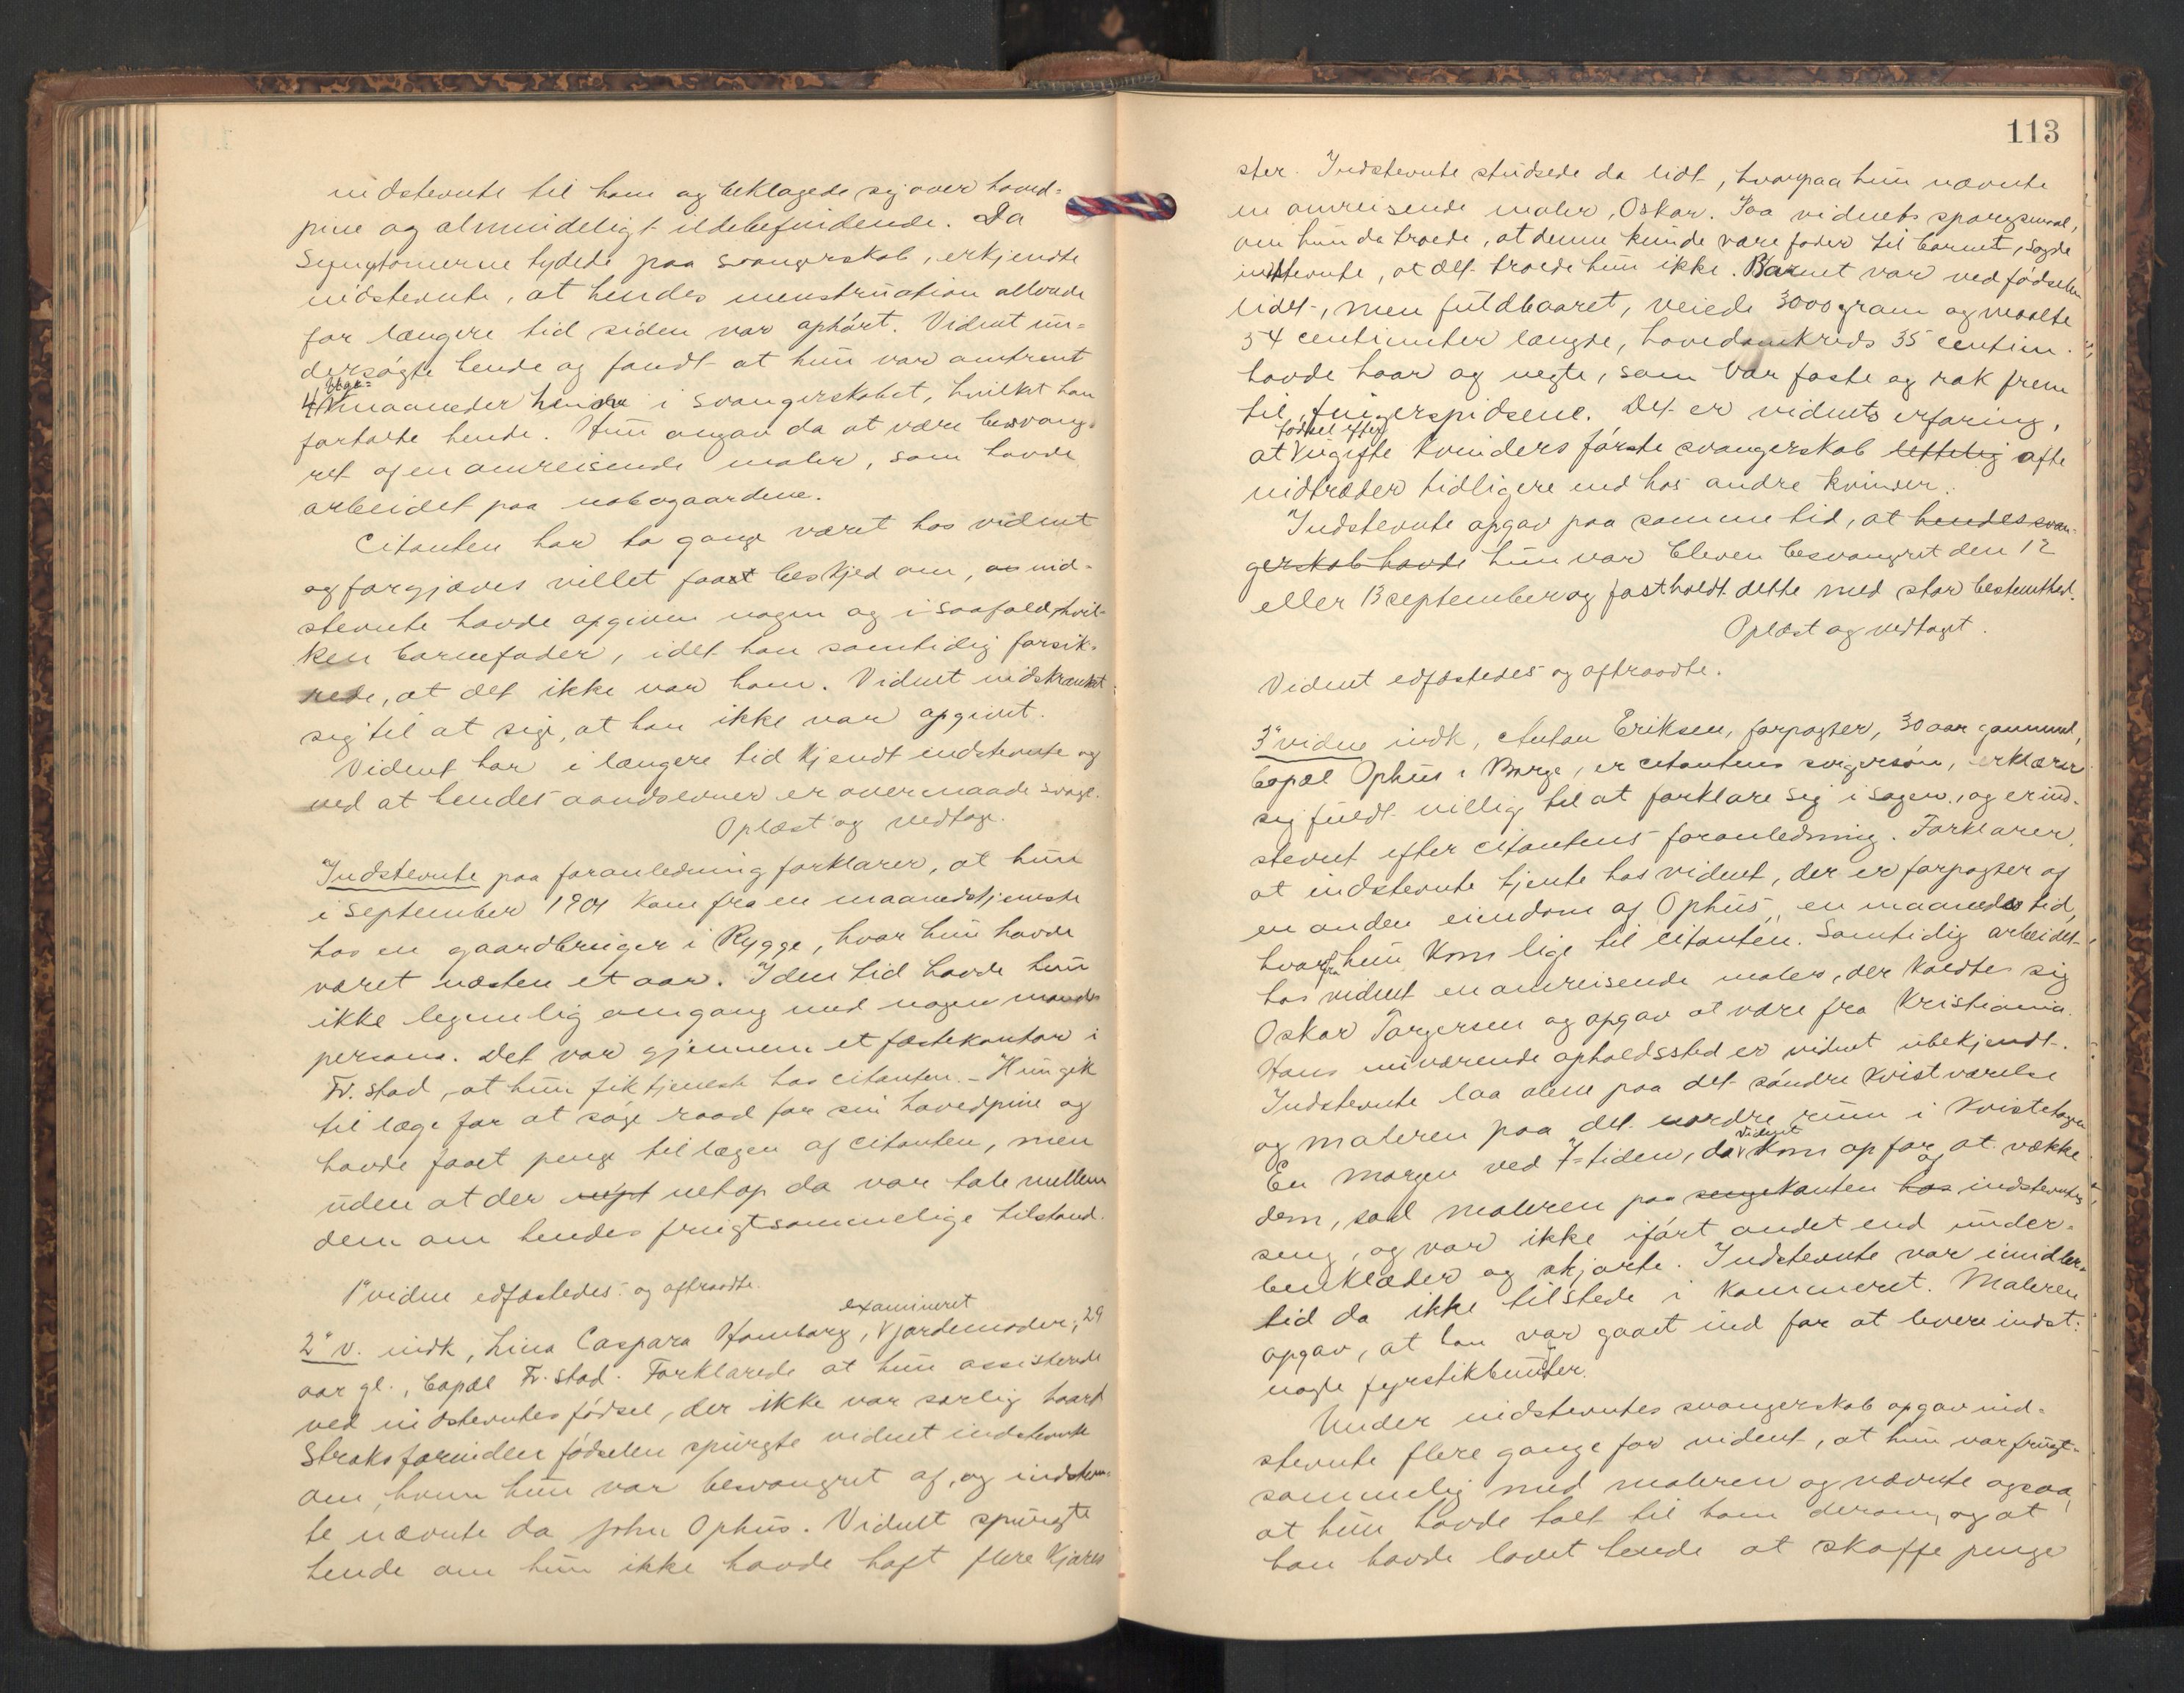 indstevnte til ham og beklagede sig over hoved-
pine og almindeligt ildebefindende. Da
Symptomerne tydede paa svangerskab, erkjendte
indstevnte, at hendes menstruation allerede
for længere tid siden var ophørt. Vidnet un-
dersøgte hende og fandt at hun var omtrent
4 maaneder henne i svangerskabet, hvilket han
fortalte hende. Hun angav da at være besvang-
ret af en omreisende maler, som havde
arbeidet paa nabogaardene.
Citanten har to gange været hos vidnet
og forgjæves villet faaet beskjed om, om ind-
stevnte havde opgiven nogen og i saafald hvil-
ken barnefader, idet han samtidig forsik-
rede, at det ikke var ham. Vidnet indskrænket
sig til at sige, at han ikke var opgivet.
Vidnet har i længere tid kjendt indstevnte og
ved at hendes aandsevner er overmaade svage.
Oplæst og vedtage.
Indstevnte paa foranledning forklarer, at hun
i september 1901 kom fra en maanedstjeneste
hos en gaardbruger i Rygge, hvor hun havde
været næsten et aar. I den tid havde hun
ikke legemlig omgang med nogen mands
person. Det var gjennem et fæstekontor i
Fr.stad, at hun fik tjeneste hos citanten. - Hun gik
til læge for at søge raad for sin hovedpine og
havde faaet penge til lægen af citanten, men
uden at der netop da var tale mellem
dem om hendes frugtsommelige tilstand.
1ste vidne edfæstedes og aftraadte.
examineret
2det v. indk, Lina Caspara Homborg, jordemoder, 29
aar gl., bopæl Fr.stad. Forklarede at hun assisterede
ved indstevntes fødsel, der ikke var særlig haard
Straks forinden fødselen spurgte vidnet indstevnte
om, hvem hun var besvangret af, og indstevn-
te nævnte da John Ophus. Vidnet spurgte
hende om hun ikke havde haft flere kjæres
113
ster. Indstevnte studsede da lidt, hvorpaa hun nævnte
en omreisende maler, Oskar. Paa vidnets spørgsmaal,
om hun da troede, at denne kunde være fader til barnet, sagde
indstevnte, at det troede hun ikke. Barnet var ved fødselen
lidet, men fuldbaaret, veiede 3000 gram og maalte
54 centimeter længde, hovedomkreds 35 centim.
havde haar og negle, som var faste og rak frem
til fingerspidsene. Det er vidnets erfaring,
fødsel efter
at ugifte kvinders første svangerskab lettelig ofte
indtræder tidligere end hos andre kvinder.
Indstevnte opgav paa samme tid, at hendes svan-
gerskab havde hun var bleven besvangret den 12
eller 13 september og fastholdt dette med stor bestemthed.
Oplæst og vedtaget.
Vidnet edfæstedes og aftraadte.
3die vidne indk, Anton Eriksen, forpagter, 30 aar gammel,
bopæl Ophus i Borge, er citantens svigersøn, erklærer
sig fuldt villig til at forklare sig i sagen, og er ind-
stevnt efter citantens foranledning. Forklarer,
at indstevnte tjente hos vidnet, der er forpagter af
en anden eiendom af Ophus, en maaneds tid,
hvorfra hun kom lige til citanten. Samtidig arbeidet
hos vidnet en omreisende maler, der kaldte sig
Oskar Torgersen og opgav at være fra Kristiania.
Hans nuværende opholdssted er vidnet ubekjendt.
Indstevnte laa alene paa det søndre kvistværelse
og maleren paa det nordre rum i kvistetagen
vidnet
En morgen ved 7-tiden, da kom op for at vække
og
dem, sad maleren paa sengekanten hos indstevntes
seng, og var ikke iført andet end under-
benklæder og skjorte. Indstevnte var imidler-
tid da ikke tilstede i kammeret. Maleren
opgav, at han var gaaet ind for at levere indst.
nogle fyrstikbunter.
Under indstevntes svangerskab opgav ind-
stevnte flere gange for vidnet, at hun var frugt-
sommelig med maleren og nævnte ogsaa,
at hun havde talt til ham derom, og at
han havde lovet hende at skaffe penge